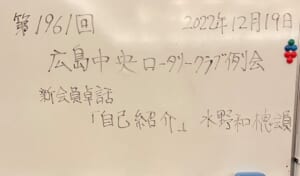 第1961回 2022年12月19日
広島中央ロータリークラブ例会
新会員卓話
「自己紹介」 水野和穂